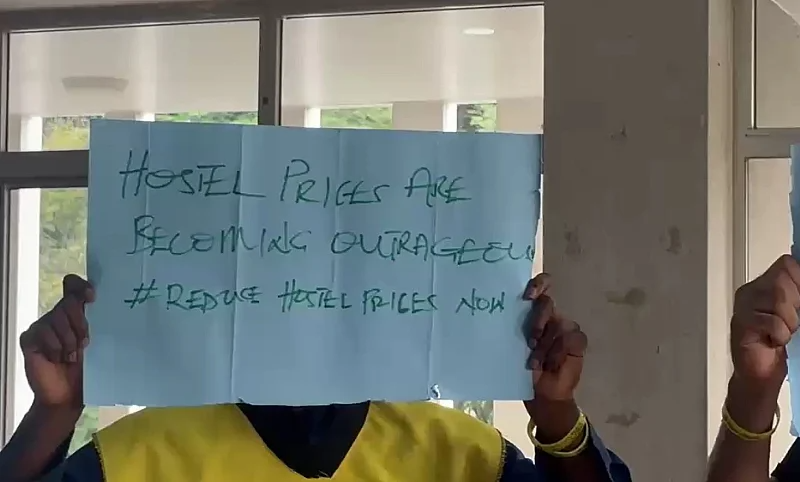 HOSTEL PRICES ARE
BECOMING OUTRAGEOU
# REDUCE HOSTEL PRICES NOW